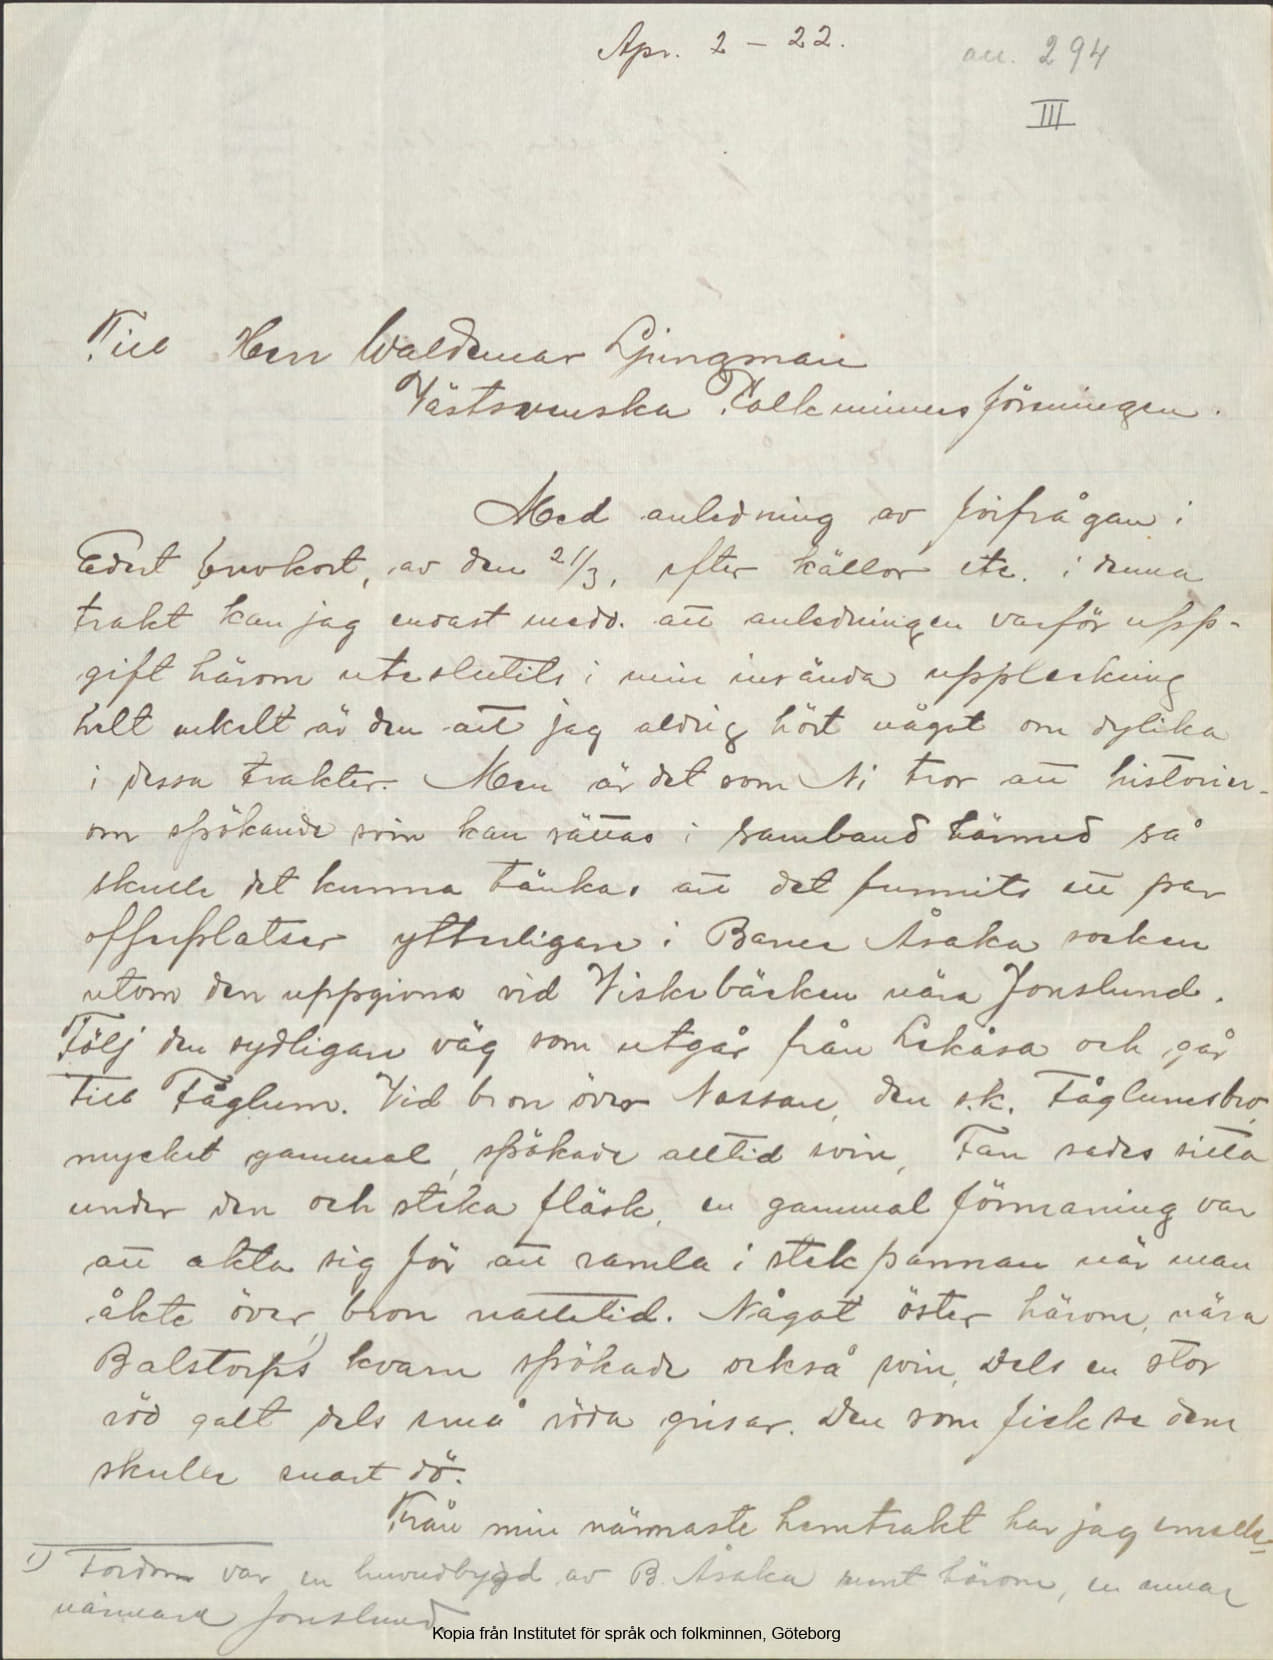 Apr. 2 – 22.
acc. 294
III
Till Herr Waldemar Ljungman
Västsvenska Folkminnesföreningen.
Med anledning av förfrågan i
Edert brevkort, av den 21/3, efter källor etc. i denna
trakt kan jag endast medd. att anledningen varför upp-
gift härom uteslutits i min insända uppteckning
helt enkelt är den att jag aldrig hört något om dylika
i dessa trakter. Men är det som Ni tror att historier
om spökande svin kan sättas i samband härmed så
skulle det kunna tänkas att det funnits ett par
offerplatser ytterligare i Barne Åsaka socken
utom den uppgivna vid Viskebäcken nära Jonslund.
Följ den sydligare väg som utgår från Lekåsa och går
till Fåglum. Vid bron över Nossan, den s.k. Fåglumsbro,
mycket gammal, spökade alltid svin, Fan sades sitta
under den och steka fläsk, en gammal förmaning var
att akta sig för att ramla i stekpannan när man
åkte över bron nattetid. Något öster härom, nära
Balstorps 1) kvarn spökade också svin, dels en stor
röd galt dels små röda grisar. Den som fick se dem
skulle snart dö.
Från min närmaste hemtrakt har jag emeller-
1) Fordom var en huvudbygd av B. Åsaka runt härom, en annan
närmare Jonslund
Kopia från Institutet för språk och folkminnen, Göteborg